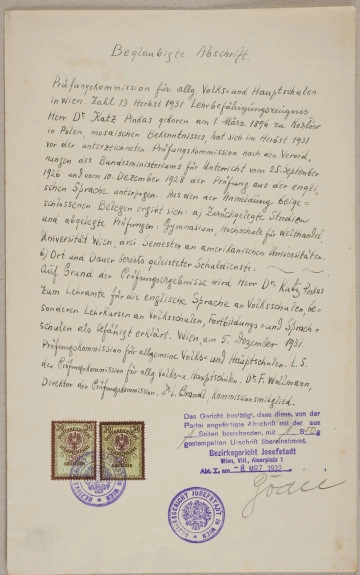 Beglaubigte Abschrift.
Prüfungskommission für allg. Volks- und Hauptschulen
in Wien. Zahl 13 Herbst 1931 Lehrbefähigungszeugnis
Herr Dr. Katz Pinkas geboren am 1. März 1896 zu Kozłów
in Polen, mosaischen Bekenntnisses, hat sich im Herbst 1931
vor der unterzeichneten Prüfungskommission nach den Verord-
nungen des Bundesministeriums für Unterricht vom 25. September
1926 und vom 10. Dezember 1928 der Prüfung aus der engli-
schen Sprache unterzogen. Aus den der Anmeldung beige=
schlossenen Belegen ergibt sich: a) Zurückgelegte Studien
und abgelegte Prüfungen: Gymnasium, Hochschule für Welthandel
Universität Wien, drei Semester an amerikanischen Universitäten.
b) Ort und Dauer bereits geleisteter Schuldienste:
Auf Grund der Prüfungsergebnisse wird Herr Dr. Katz Pinkas
zum Lehramte für die englische Sprache an Volksschulen, be=
sonderen Lehrkursen an Volksschulen, Fortbildungs= und Sprach=
schulen als befähigt erklärt. Wien, am 5. Dezember 1931.
Prüfungskommission für allgemeine Volks- und Hauptschulen. L.S.
der Prüfungskommission für allg Volks-u Hauptschulen. Dr. F. Wollmann,
Direktor der Prüfungskommission. Dr. L. Brandl, Kommissionsmitglied.
Das Gericht bestätigt, dass diese, von der
Partei angefertigte Abschrift mit der aus
1 Seiten bestehenden, mit 1 S 50 g
gestempelten Urschrift übereinstimmt.
Bezirksgericht Josefstadt
Wien, VIII., Albertplatz 1
Abt. I, am - 8. MRZ. 1932
30 30
GROSCHEN
BEZIRKSGERICHT JOSEFSTADT IN WIEN